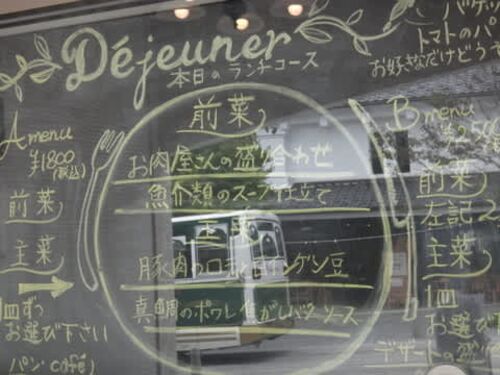 Déjeuner
本日のランチコース
バゲッ
トマトのバ
お好きなだけどう
A menu
¥1800
(税込)
前菜
主菜
1皿ずつ
お選び下さい
パン café
前菜
お肉屋さんの盛り合わせ
魚介類のスープ仕立て
主菜
豚肉のロ インゲン豆
真鯛のポワレ バターソース
B menu
¥250
前菜
左記2
主菜
1皿
お選び
デザートの盛